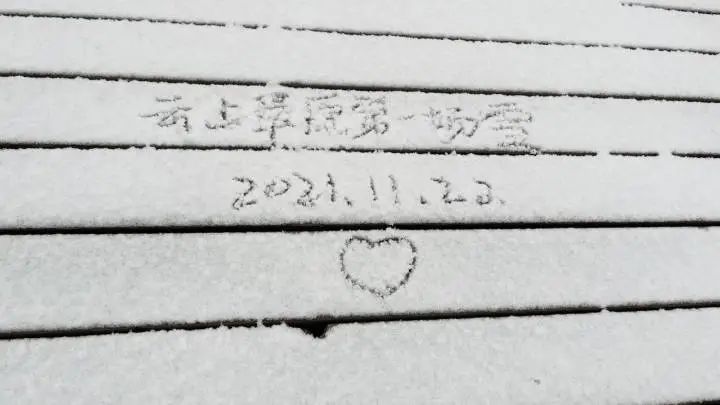 云上草原第一场雪
2021.11.22.